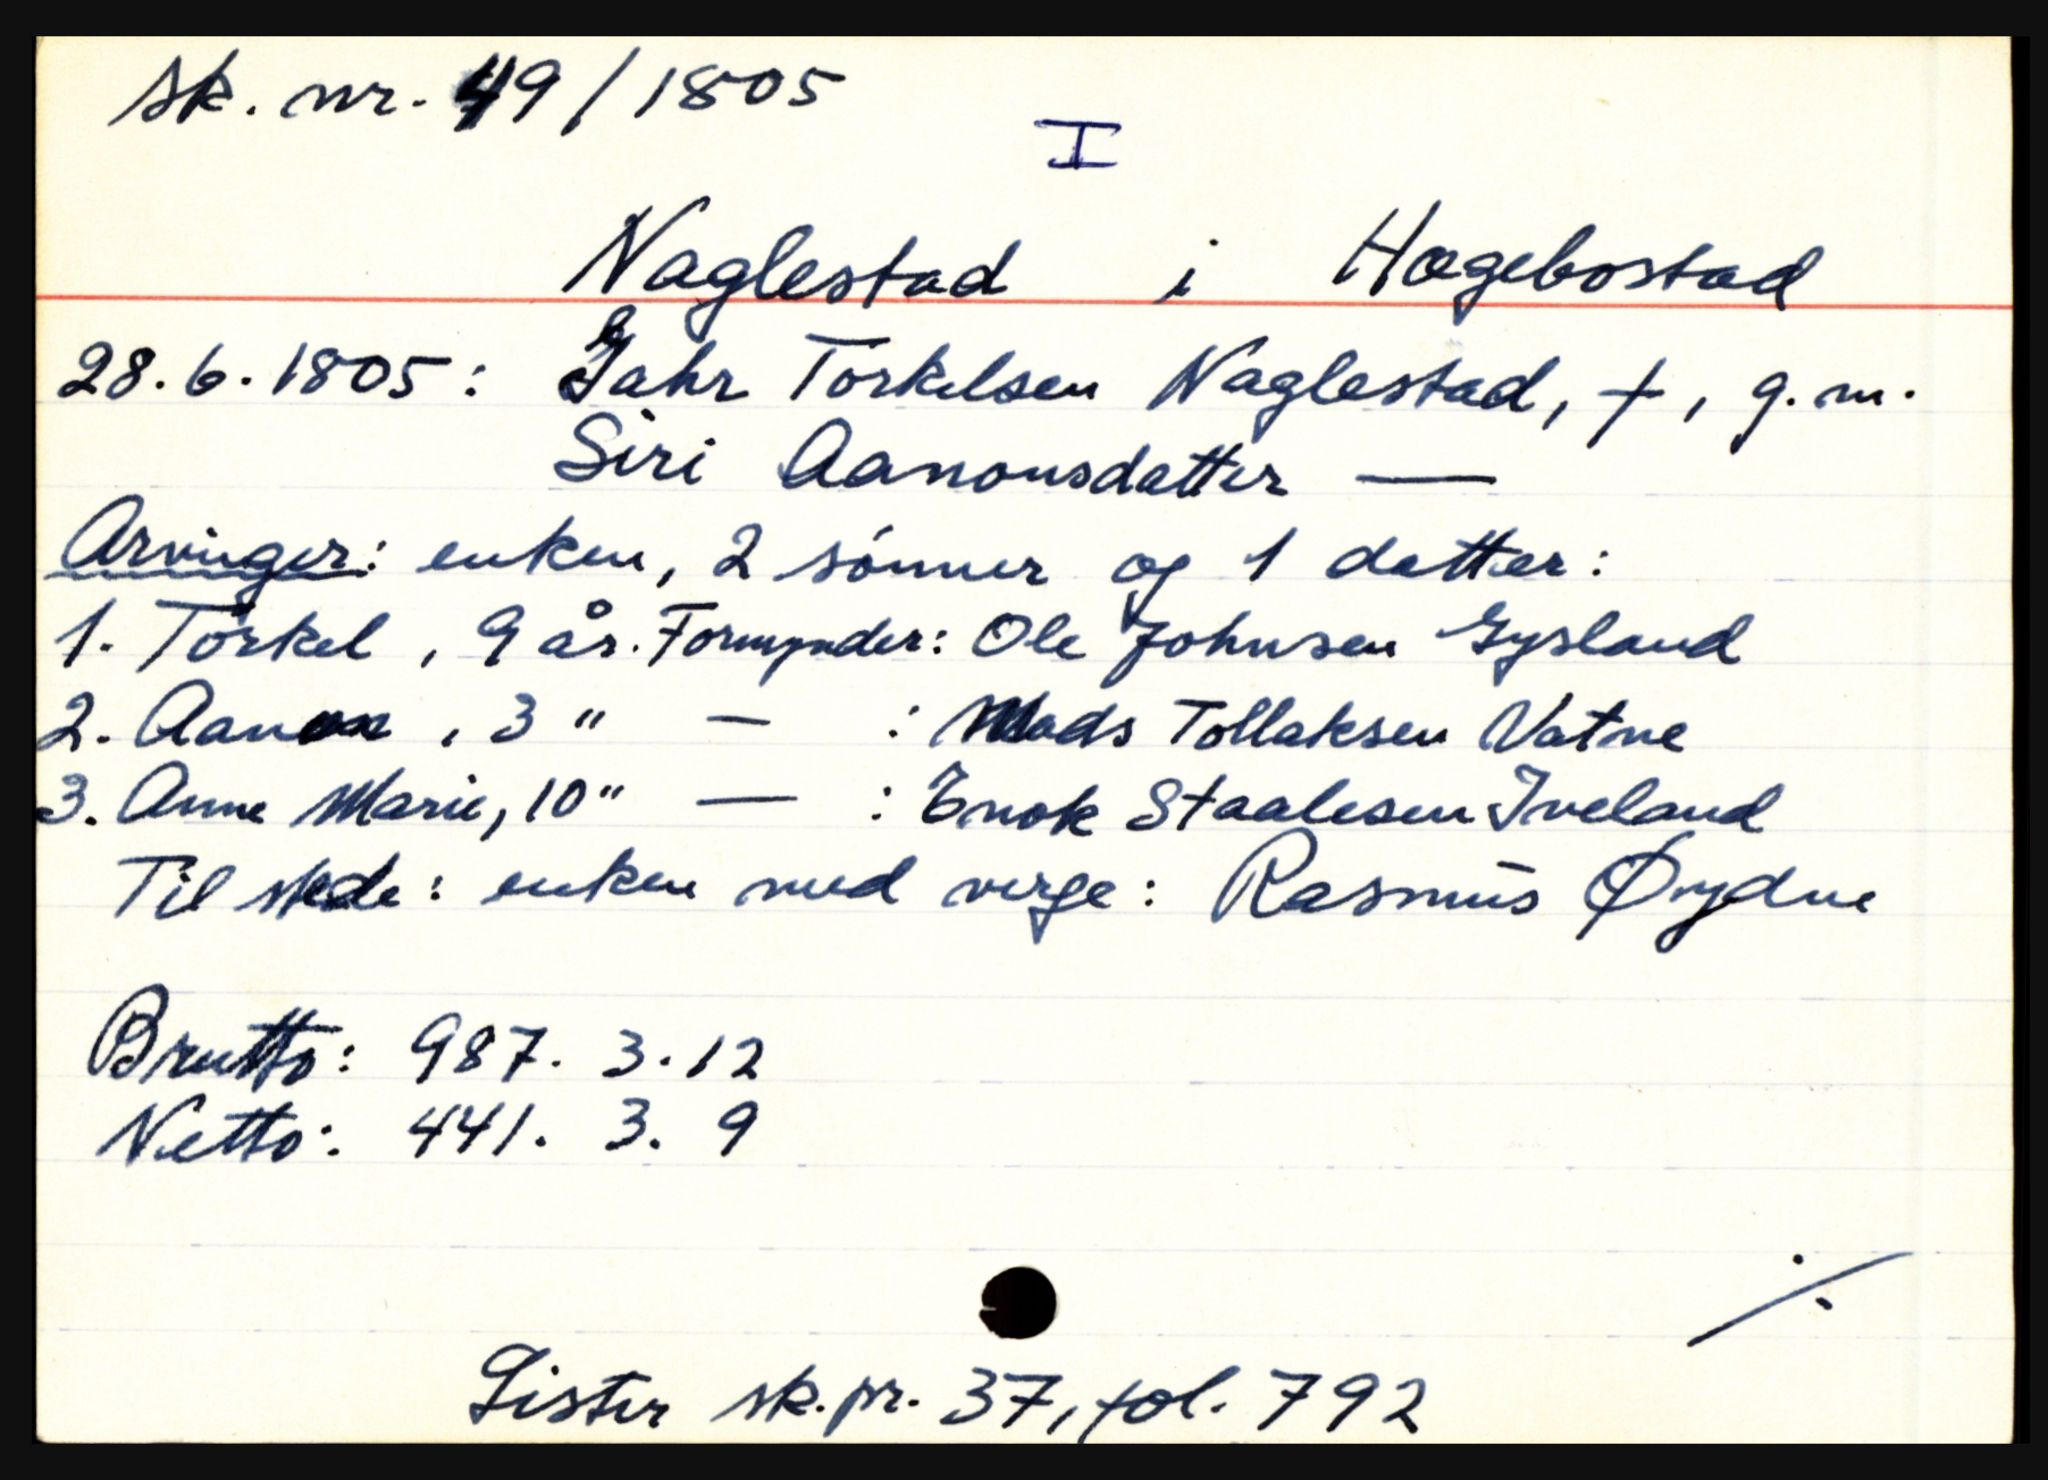 sk. nr. 49/1805
I
Naglestad i Hægebostad
28.6.1805: Jahr Torkelsen Naglestad, †, g.m.
Siri Aanonsdatter —
Arvinger: enken, 2 sønner og 1 datter:
1. Torkel, 9 år. Formynder: Ole Johnsen Gysland
2. Aanon, 3 " — : Mads Tollaksen Vatne
3. Anne Marie, 10 " — : Enok Staalesen Iveland
Til stede: enken med verge: Rasmus Øydne
Brutto: 987. 3. 12
Netto: 441. 3. 9
⁒
Lister sk.pr. 37, fol. 792